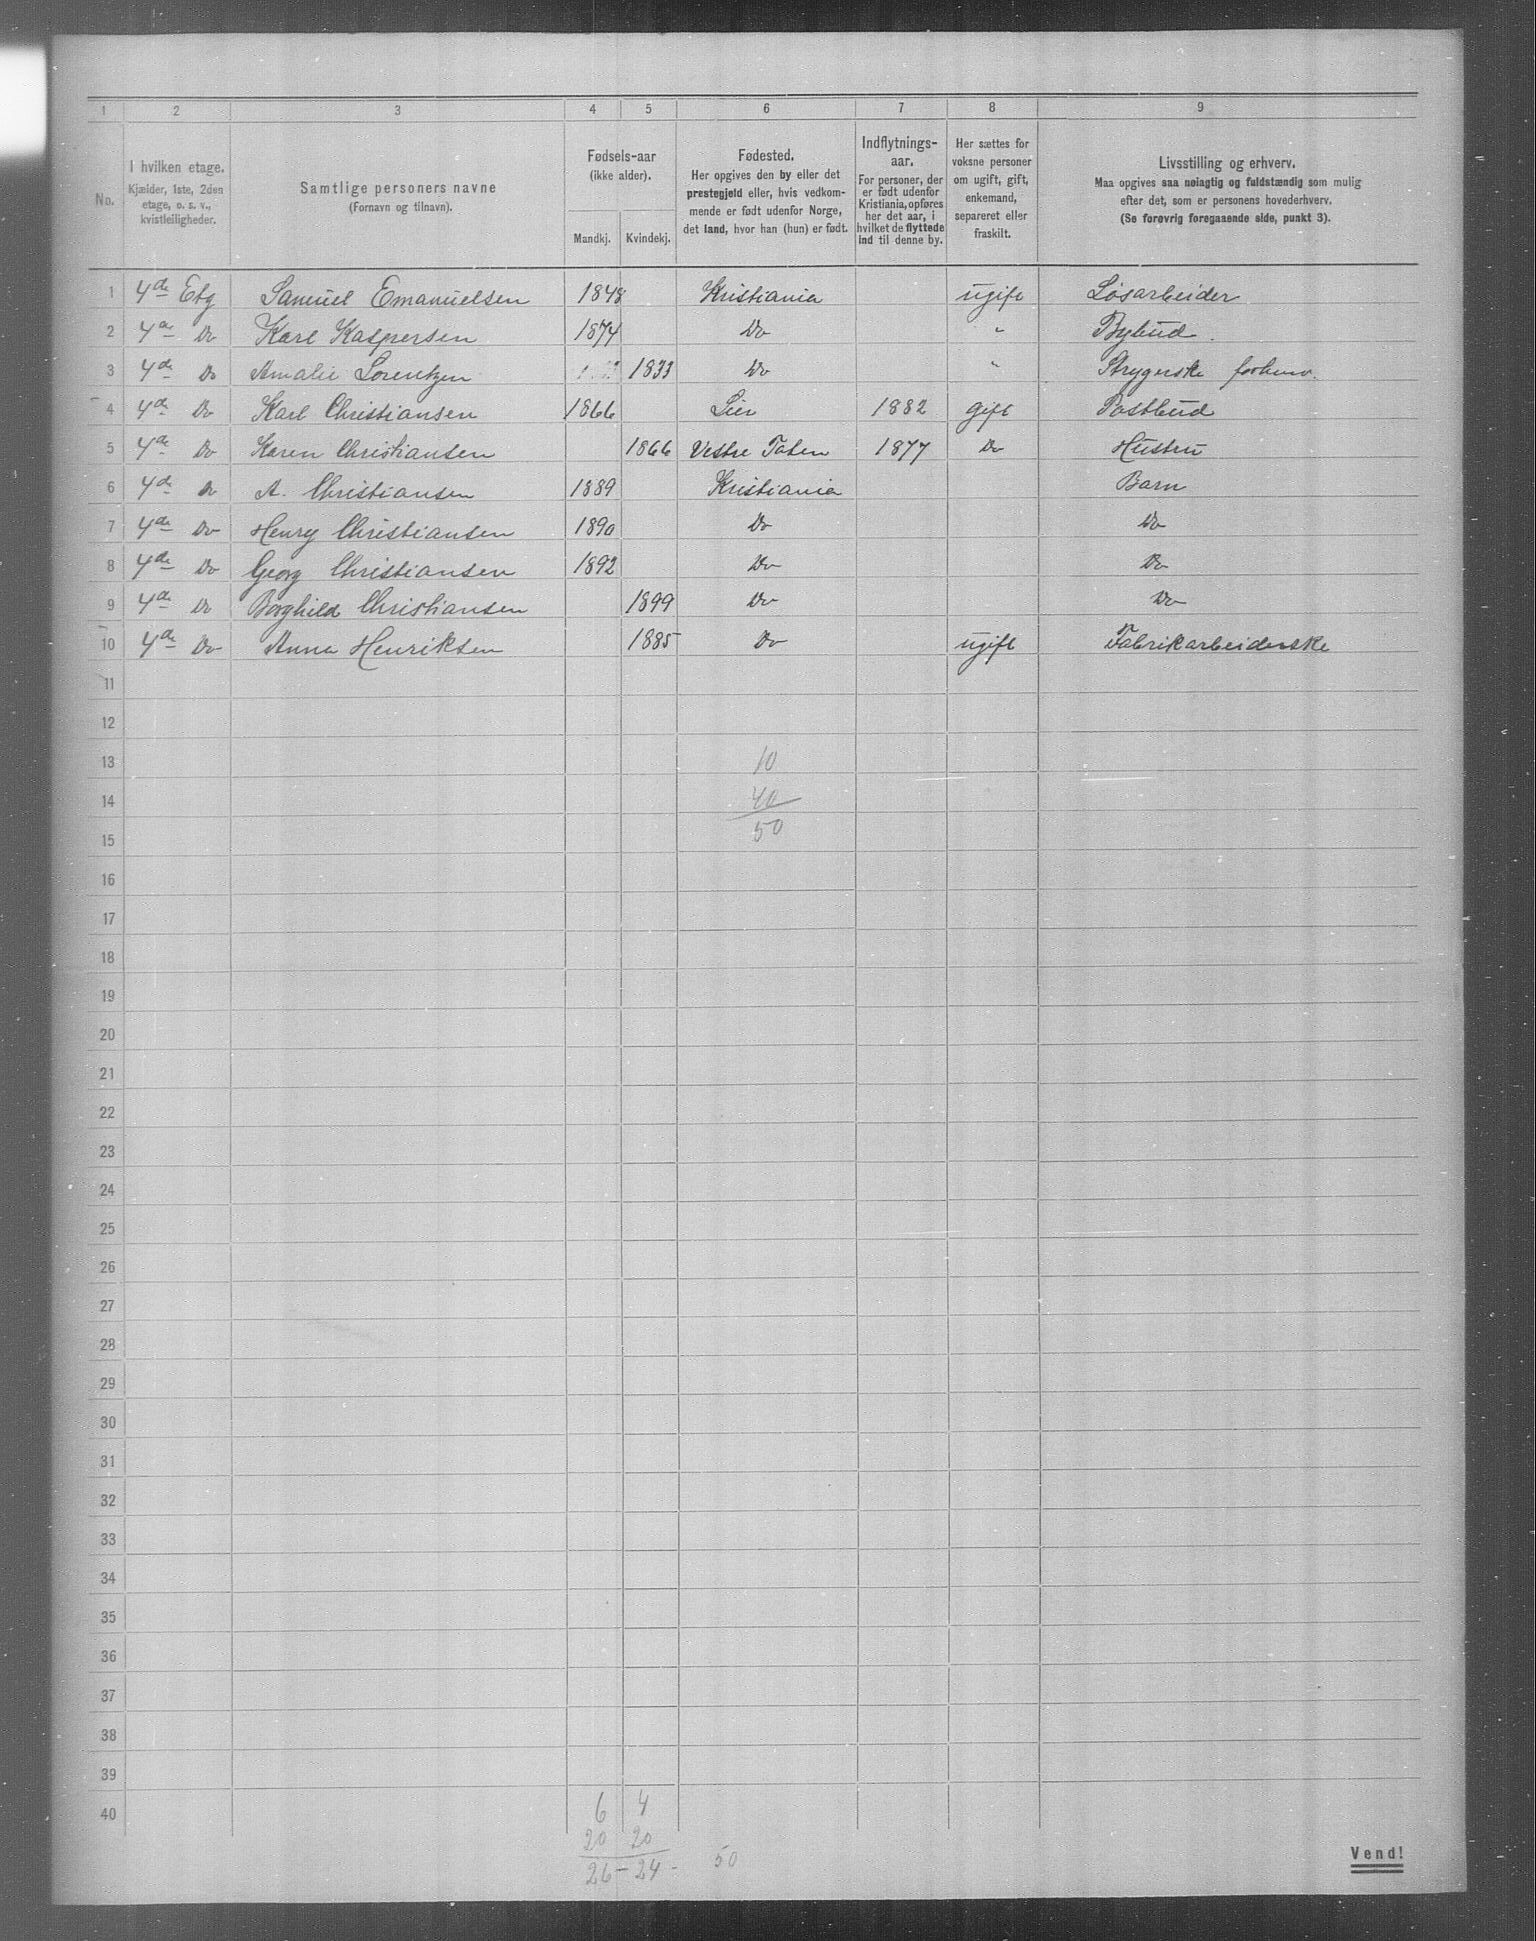 1 2 3 4 5 6 7 8 9
No.
I hvilken etage.
Kjælder, 1ste, 2den
etage, o. s. v.,
kvistleiligheder.
Samtlige personers navne
(Fornavn og tilnavn).
Fødsels-aar
(ikke alder).
Mandkj. Kvindekj.
Fødested.
Her opgives den by eller det
prestegjeld eller, hvis vedkom-
mende er født udenfor Norge,
det land, hvor han (hun) er født.
Indflytnings-
aar.
For personer, der
er født udenfor
Kristiania, opføres
her det aar, i
hvilket de flyttede
ind til denne by.
Her sættes for
voksne personer
om ugift, gift,
enkemand,
separeret eller
fraskilt.
Livsstilling og erhverv.
Maa opgives saa nøiagtig og fuldstændig som mulig
efter det, som er personens hovederhverv.
(Se forøvrig foregaaende side, punkt 3).
1 4de Etg Samuel Emanuelsen 1848 Kristiania ugift Løsarbeider
2 4de Do Karl Kaspersen 1874 Do " Bybud.
3 4de Do Amalie Lorentzen 1833 Do " Strygerske forhenv.
4 4de Do Karl Christiansen 1866 Lier 1882 gift Postbud
5 4de Do Karen Christiansen 1866 Vestre Toten 1877 Do Hustru
6 4de Do A. Christiansen 1889 Kristiania Barn
7 4de Do Henry Christiansen 1890 Do Do
8 4de Do Georg Christiansen 1892 Do Do
9 4de Do Borghild Christiansen 1899 Do Do
10 4de Do Anna Henriksen 1885 Do ugift Fabrikarbeiderske
11
12
13 10
14 40
15 50
16
17
18
19
20
21
22
23
24
25
26
27
28
29
30
31
32
33
34
35
36
37
38
39
40 6 4
20 20
26 - 24 - 50
Vend!